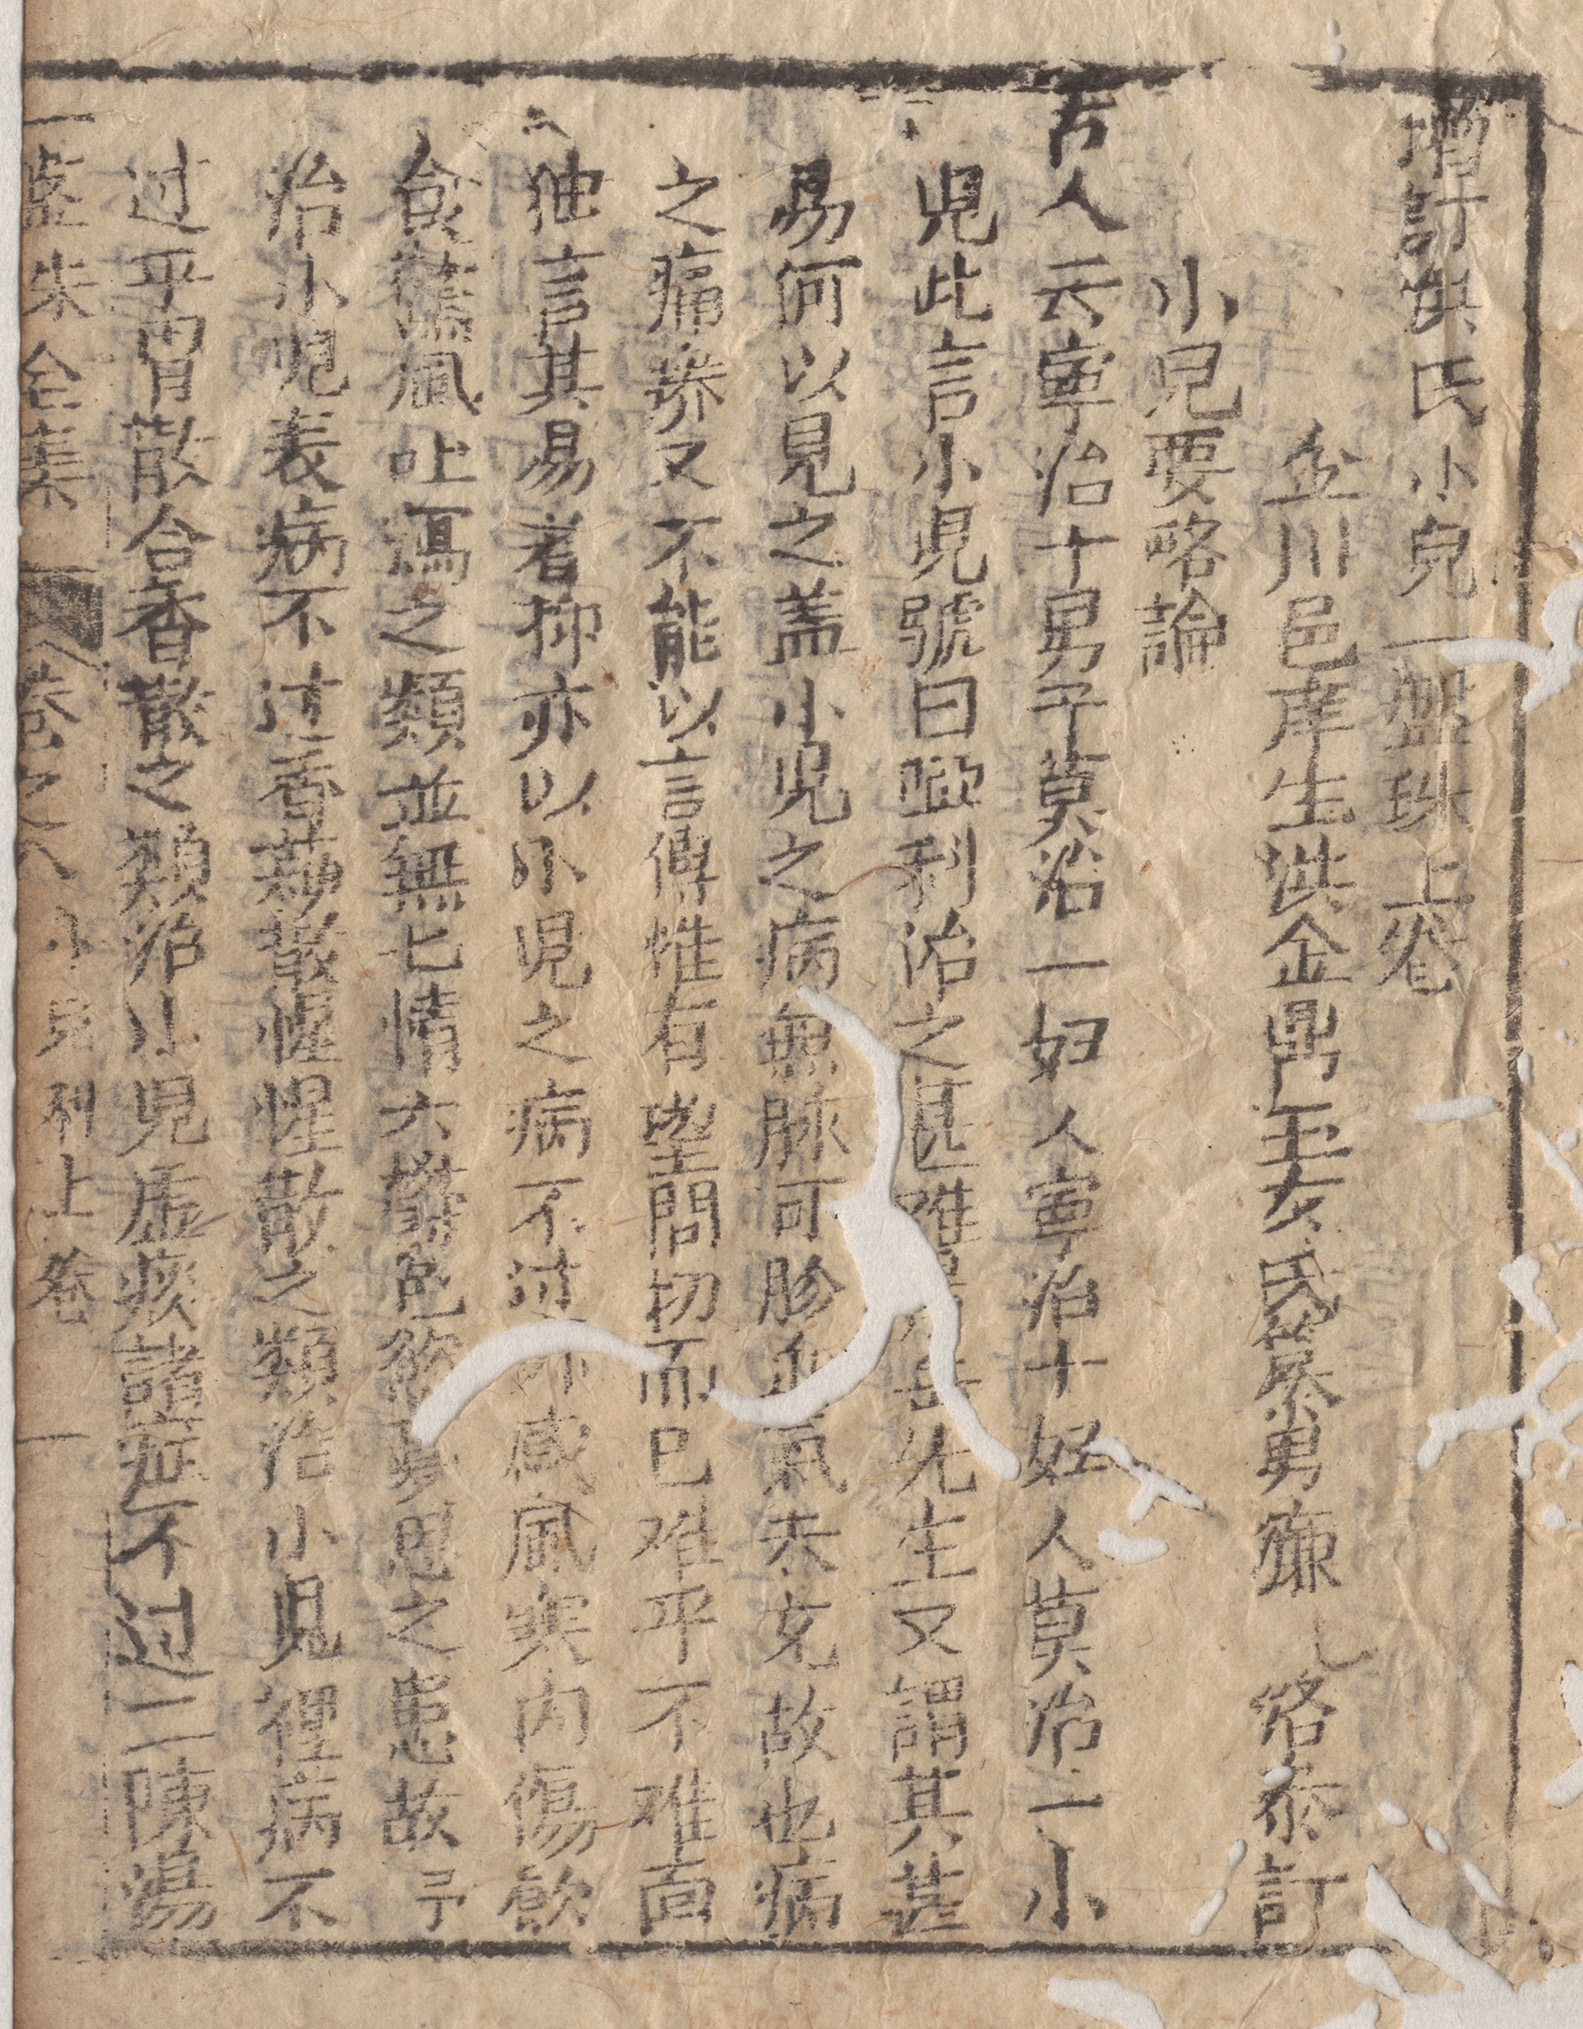 增訂洪氏小兒一盤珠上卷
金川邑庠生洪金鼎玉友氏纂男 絡泰訂
小兒要略論
古人云寧治十男子莫治一妇人寧治十妇人莫治一小
兒此言小兒號曰啞科治之甚难 岳先生又謂其甚
易何以見之盖小兒之病無脉可胗血氣未充故也病
之痛癢又不能以言傳惟有望問切而已难乎不难而
独言其易者抑亦以小兒之病不过 感風寒内傷飲
食驚風吐瀉之類並無七情六欝色慾 思之患故予
治小兒表病不过香蘇散惺惺散之類治小兒裡病不
过平胃散合香散之類治小兒虛痰諸症不过二陳湯
一盤朱全集 卷之八 小兒科上卷 一